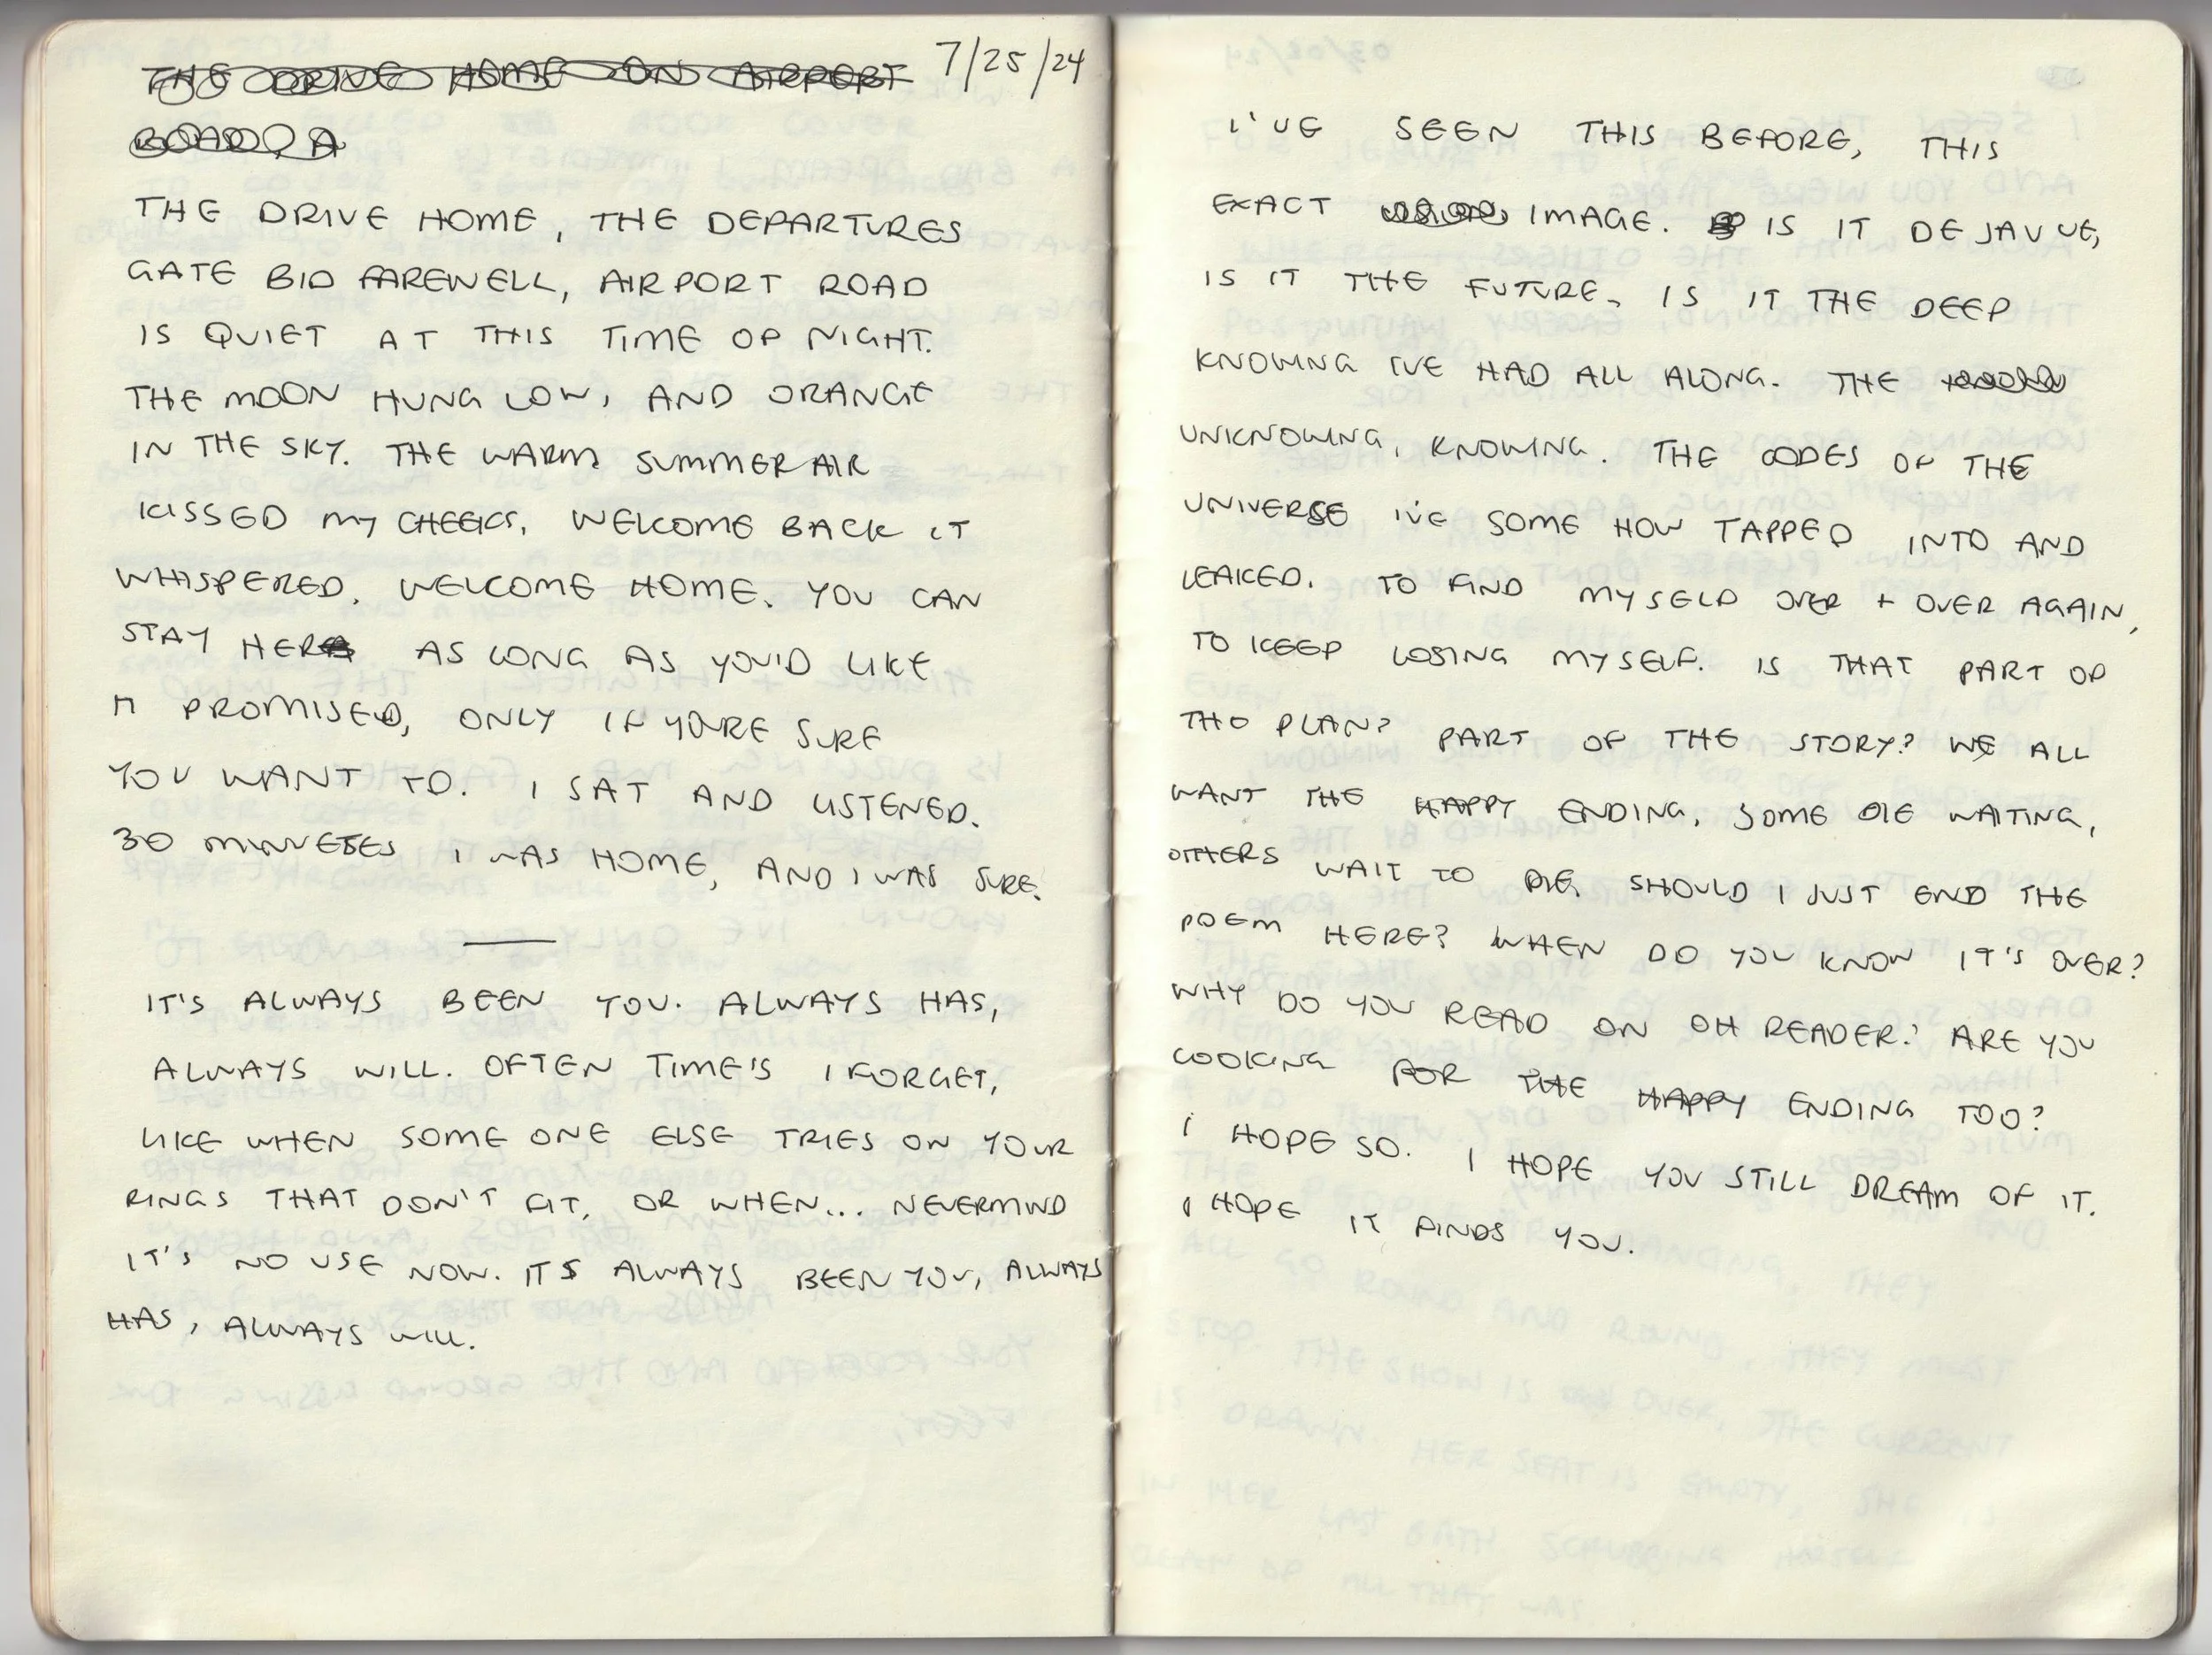 THE DRIVE HOME ON AIRPORT 7/25/24
ROAD, A
THE DRIVE HOME, THE DEPARTURES
GATE BID FAREWELL, AIRPORT ROAD
IS QUIET AT THIS TIME OF NIGHT.
THE MOON HUNG LOW, AND ORANGE
IN THE SKY. THE WARM SUMMER AIR
KISSED MY CHEEKS, WELCOME BACK IT
WHISPERED. WELCOME HOME. YOU CAN
STAY HERE AS LONG AS YOU'D LIKE
IT PROMISED, ONLY IF YOURE SURE
YOU WANT TO. I SAT AND LISTENED.
30 MINUETES I WAS HOME, AND I WAS SURE.
IT'S ALWAYS BEEN YOU. ALWAYS HAS,
ALWAYS WILL. OFTEN TIME'S I FORGET,
LIKE WHEN SOME ONE ELSE TRIES ON YOUR
RINGS THAT DON'T FIT, OR WHEN... NEVERMIND
IT'S NO USE NOW. ITS ALWAYS BEEN YOU, ALWAYS
HAS, ALWAYS WILL.
I'VE SEEN THIS BEFORE, THIS
EXACT IMAGE. IS IT DEJAVUE,
IS IT THE FUTURE, IS IT THE DEEP
KNOWING IVE HAD ALL ALONG. THE
UNKNOWING, KNOWING. THE CODES OF THE
UNIVERSE I'VE SOME HOW TAPPED INTO AND
LEAKED. TO FIND MYSELF OVER + OVER AGAIN,
TO KEEP LOSING MYSELF. IS THAT PART OF
THE PLAN? PART OF THE STORY? WE ALL
WANT THE HAPPY ENDING, SOME DIE WAITING,
OTHERS WAIT TO DIE. SHOULD I JUST END THE
POEM HERE? WHEN DO YOU KNOW IT'S OVER?
WHY DO YOU READ ON OH READER? ARE YOU
LOOKING FOR THE HAPPY ENDING TOO?
I HOPE SO. I HOPE YOU STILL DREAM OF IT.
I HOPE IT FINDS YOU.